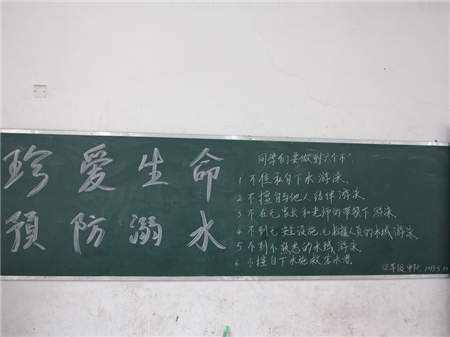 珍爱生命
预防溺水
同学们要做到六个“不”
1 不但私自下水游泳
2 不擅自与他人结伴游泳
3 不在无家长和老师的带领下游泳
4 不到无安全设施、无救援人员的水域游泳
5 不到不熟悉的水域游泳
6 不擅自下水施救